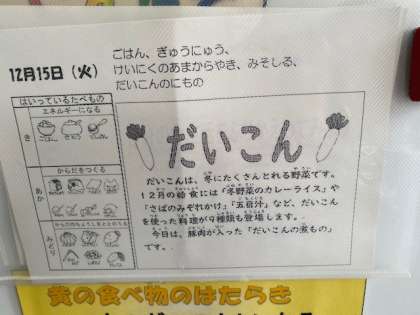 12月15日（火）
ごはん、ぎゅうにゅう、
けいにくのあまからやき、みそしる、
だいこんのにもの
はいっているたべもの
エネルギーになる
き
からだをつくる
あか
みどり
だいこん
だいこんは、冬にたくさんとれる野菜です。
12月の給食には「冬野菜のカレーライス」や
「さばのみぞれかけ」「五目汁」など、だいこん
を使った料理が9種類も登場します。
今日は、豚肉が入った「だいこんの煮もの」
です。
黄の食べ物のはたらき